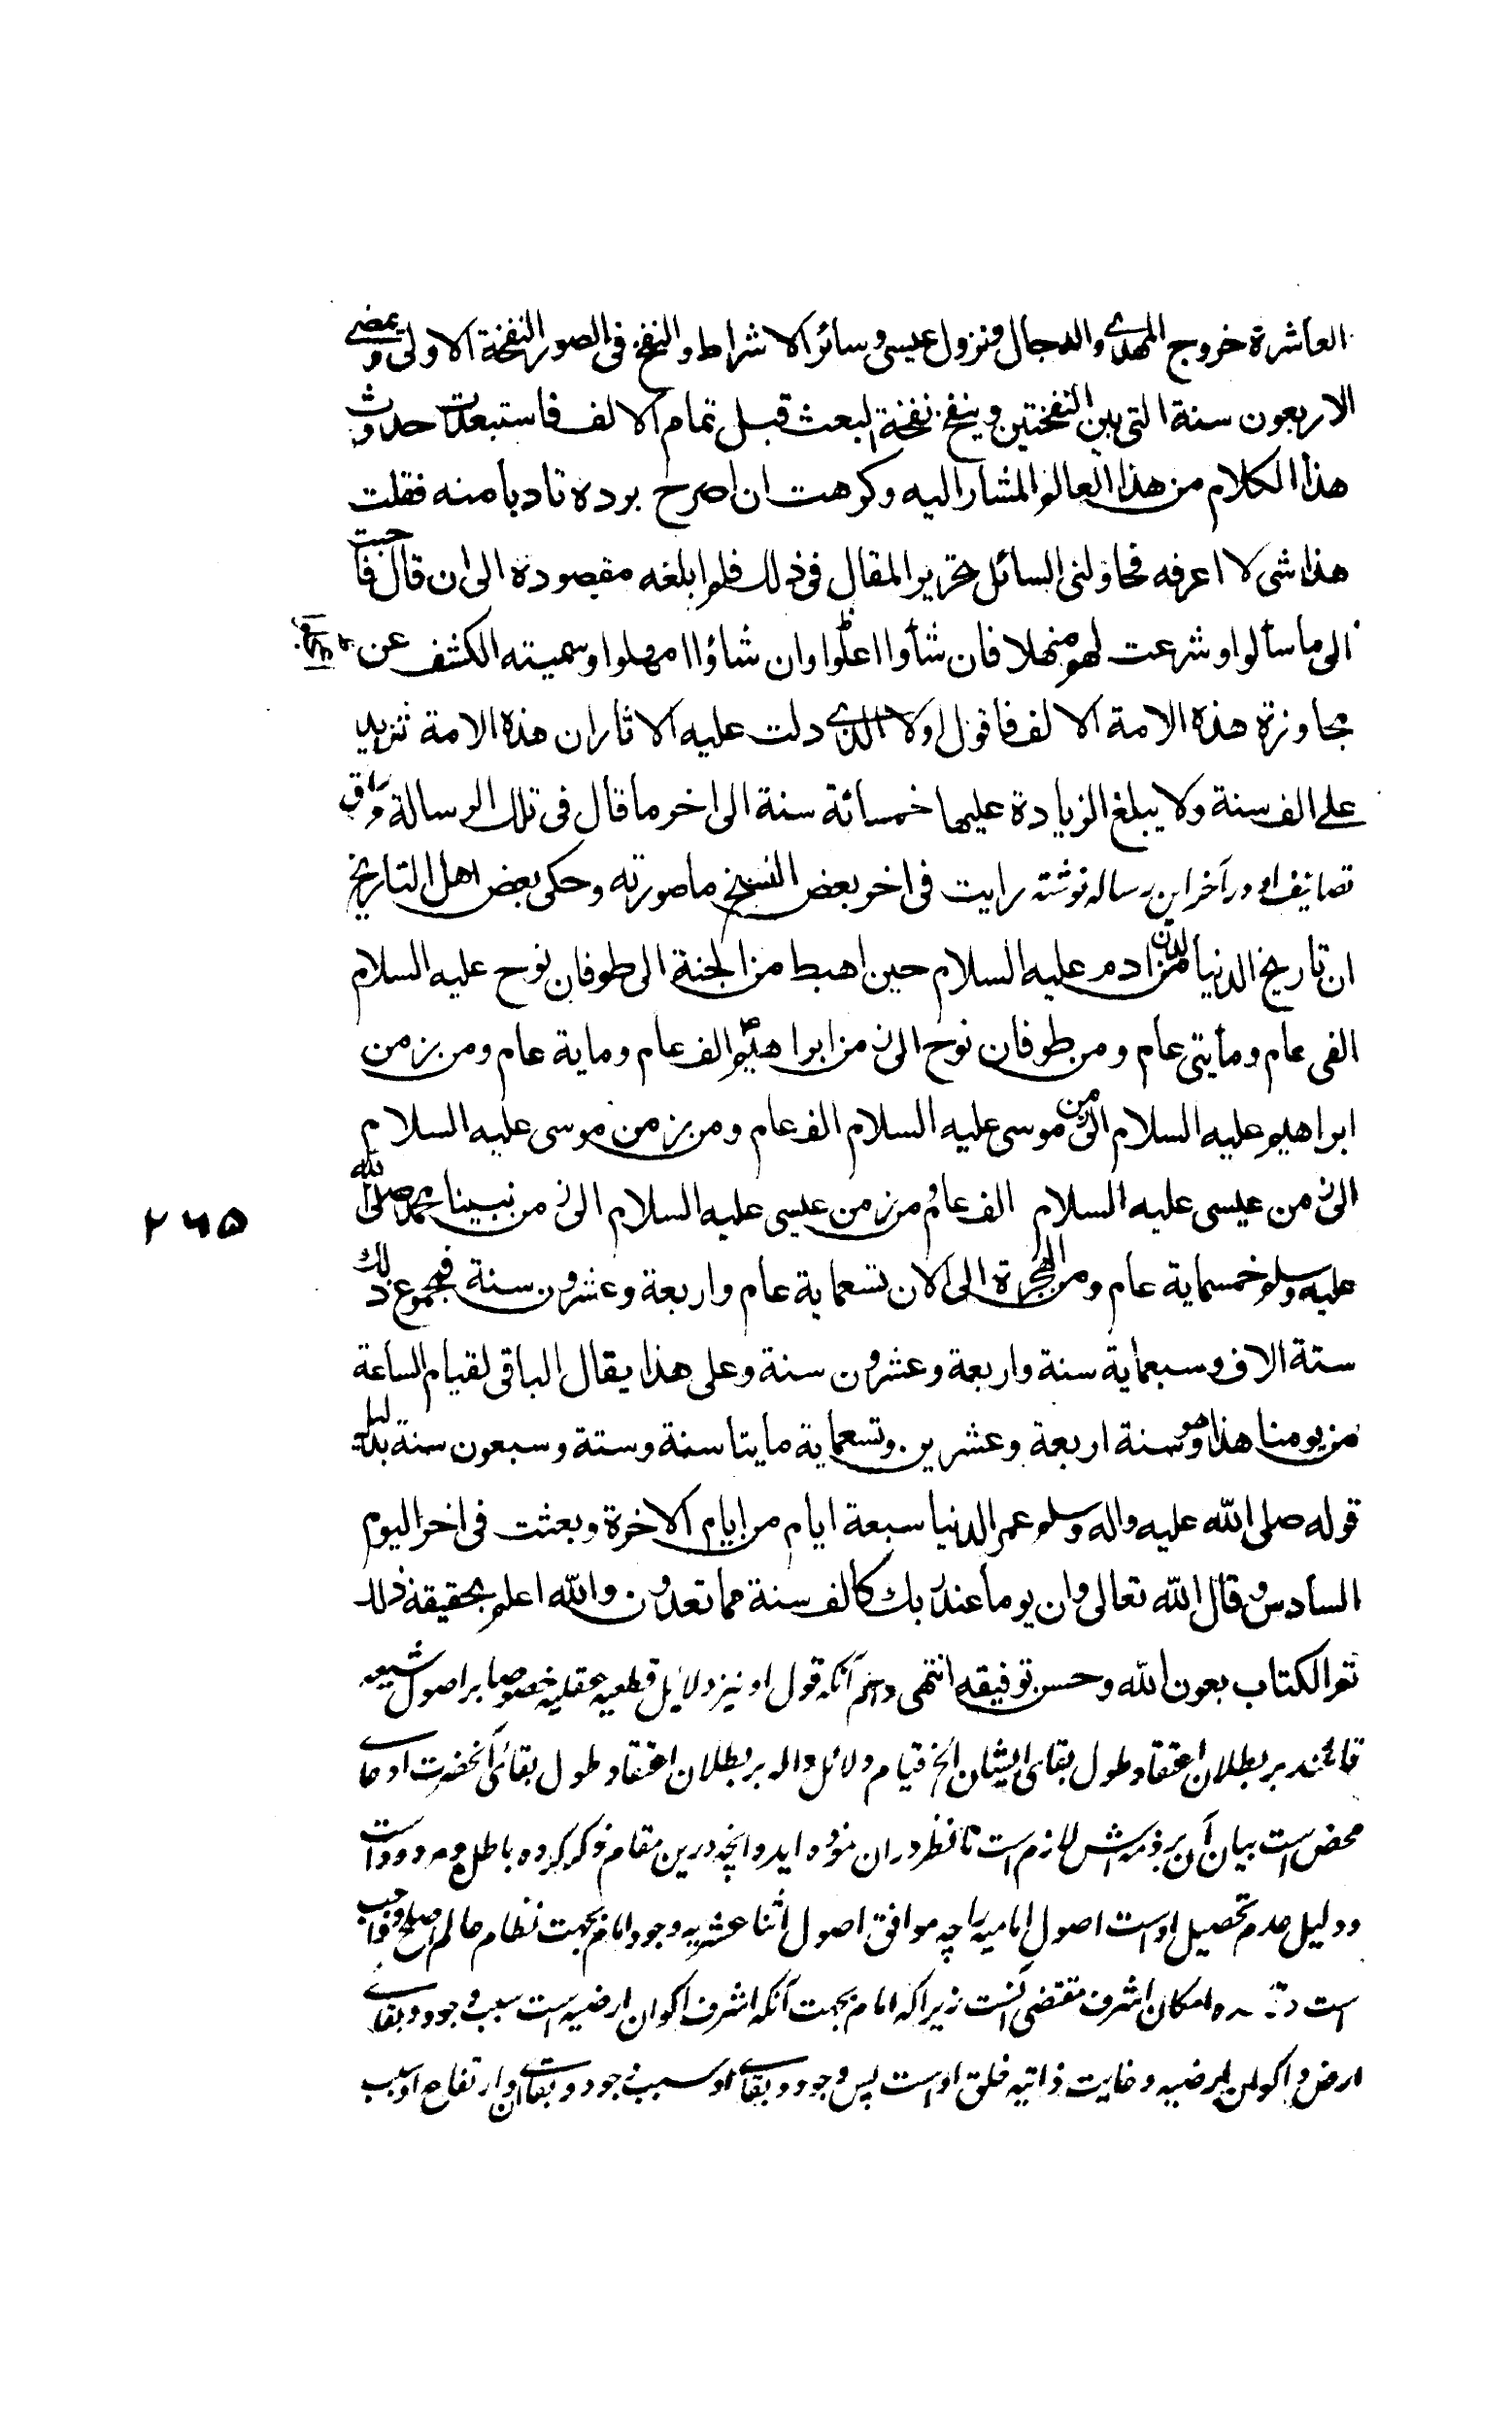 العاشرة خروج المهدی والدجال ونزول عیسی وسائر الاشراط والنفخ فی الصور النفخة الاولی ویمضے
الاربعون سنة التی بین النفختین وینفخ نفخة البعث قبل تمام الالف فاستبعدت حدوث
هذا الکلام من هذا العالم المشار الیه وکرهت ان اصرح برده تادبا منه فقلت
هذا شی لا اعرفه فحاولنی السائل تحریر المقال فی ذلک فلم ابلغه مقصوده الی ان قال فاجبت
الی ما سألوا وشرعت لهم منهلا فان شأوا اعلوا وان شاؤا امهلوا وسمیته الکشف عن
مجاوزة هذه الامة الالف فاقول اولا الذی دلت علیه الاثار ان هذه الامة تزید
علی الف سنة ولا یبلغ الزیادة علیها خمسائة سنة الی اخر ما قال فی تلک الرسالة وراق
تصانیف او در آخر این رساله نوشته رایت فی اخر بعض النسخ ما صورته وحکی بعض اهل التاریخ
ان تاریخ الدنیا من لدن ادم علیه السلام حین اهبط من الجنة الی طوفان نوح علیه السلام
الفی عام ومأیتی عام ومن طوفان نوح الی زمن ابراهیم الف عام ومایة عام ومن زمن
ابراهیم علیه السلام الی زمن موسی علیه السلام الف عام ومن زمن موسی علیه السلام
الی زمن عیسی علیه السلام الف عام ومن زمن عیسی علیه السلام الی زمن نبینا محمد صلی الله
علیه وسلم خمسمایة عام ومن الهجرة الی الان تسعمایة عام واربعة وعشرون سنة فمجموع ذلک
ستة الاف وسبعمایة سنة واربعة وعشرون سنة وعلی هذا یقال الباقی لقیام الساعة
من یومنا هذا وهو سنة اربعة وعشرین وتسعمایة مایتا سنة وستة وسبعون سنة بدلیل
قوله صلی الله علیه واله وسلم عمر الدنیا سبعة ایام من ایام الاخرة وبعثت فی اخر الیوم
السادس وقال الله تعالی وان یوما عند ربک کالف سنة مما تعدون والله اعلم بحقیقة ذلک
تم الکتاب بعون الله وحسن توفیقه انتهی دهم آنکه قول او نیز دلایل قطعیه عقلیه خصوصا بر اصول شیعه
قائمند بر بطلان اعتقاد طول بقای ایشان الخ قیام دلائل داله بر بطلان اعتقاد طول بقائ آنحضرت ادعای
محض است بیان آن بر ذمه اش لازم است تا نظر دران نموده اید وانچه درین مقام ذکر کرده باطل و مردود است
ودلیل عدم تحصیل اوست اصول امامیه را چه موافق اصول اثنا عشریه وجود امام بجهت نظام عالم اصلح و واجب
است و امکان اشرف مقتضی آنست زیرا که امام بجهت آنکه اشرف اکوان ارضیه است سبب وجود و بقای
ارض و اکوان ارضیه و غایت ذاتیه خلق اوست پس وجود و بقای او سبب وجود و بقای آن و ارتفاع او سبب
۲۶۵